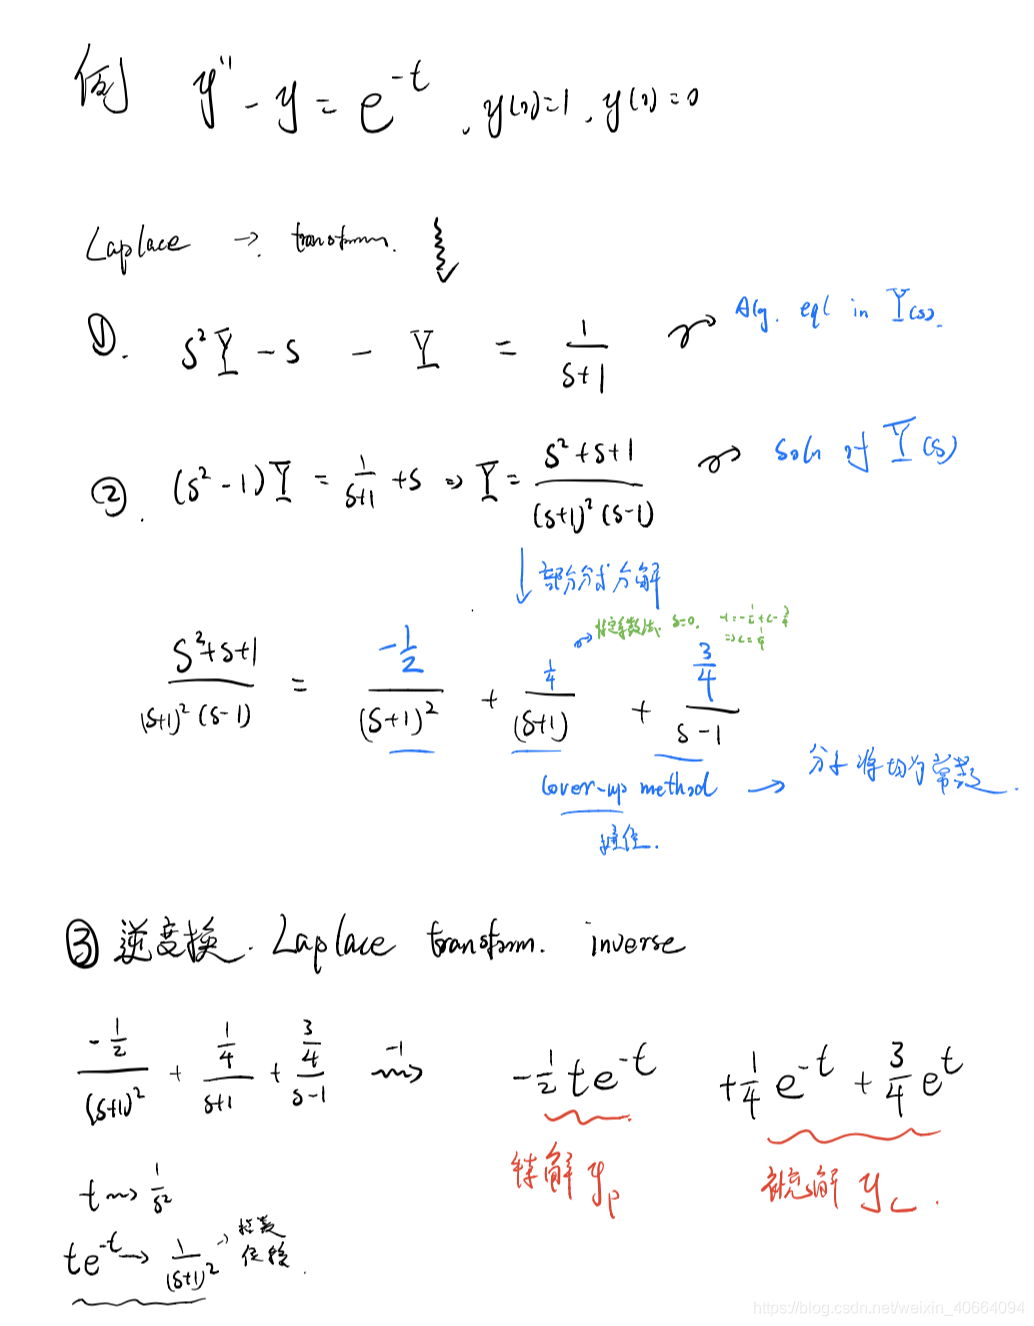 例 y'' - y = e^{-t} , y(0)=1 , y'(0)=0
Laplace → transform.
①. s²Y - s - Y = 1/(s+1) Alg. eql in Y(s).
②. (s²-1)Y = 1/(s+1) + s ⇒ Y = (s²+s+1)/((s+1)²(s-1)) Soln of Y(s)
↓ 部分分式分解
待定系数法 s=0. -1=-1/2+c-3/4
⇒ c=1/4
(s²+s+1)/((s+1)²(s-1)) = (-1/2)/(s+1)² + (1/4)/(s+1) + (3/4)/(s-1)
Cover-up method → 分子将均为常数.
③ 逆变换. Laplace transform. inverse
(-1/2)/(s+1)² + (1/4)/(s+1) + (3/4)/(s-1) ⇝^{-1} -1/2 te^{-t} + 1/4 e^{-t} + 3/4 e^{t}
特解 y_p 补充解 y_c.
t ⇝ 1/s²
te^{-t} → 1/(s+1)² → 指数
位移.
https://blog.csdn.net/weixin_40664094